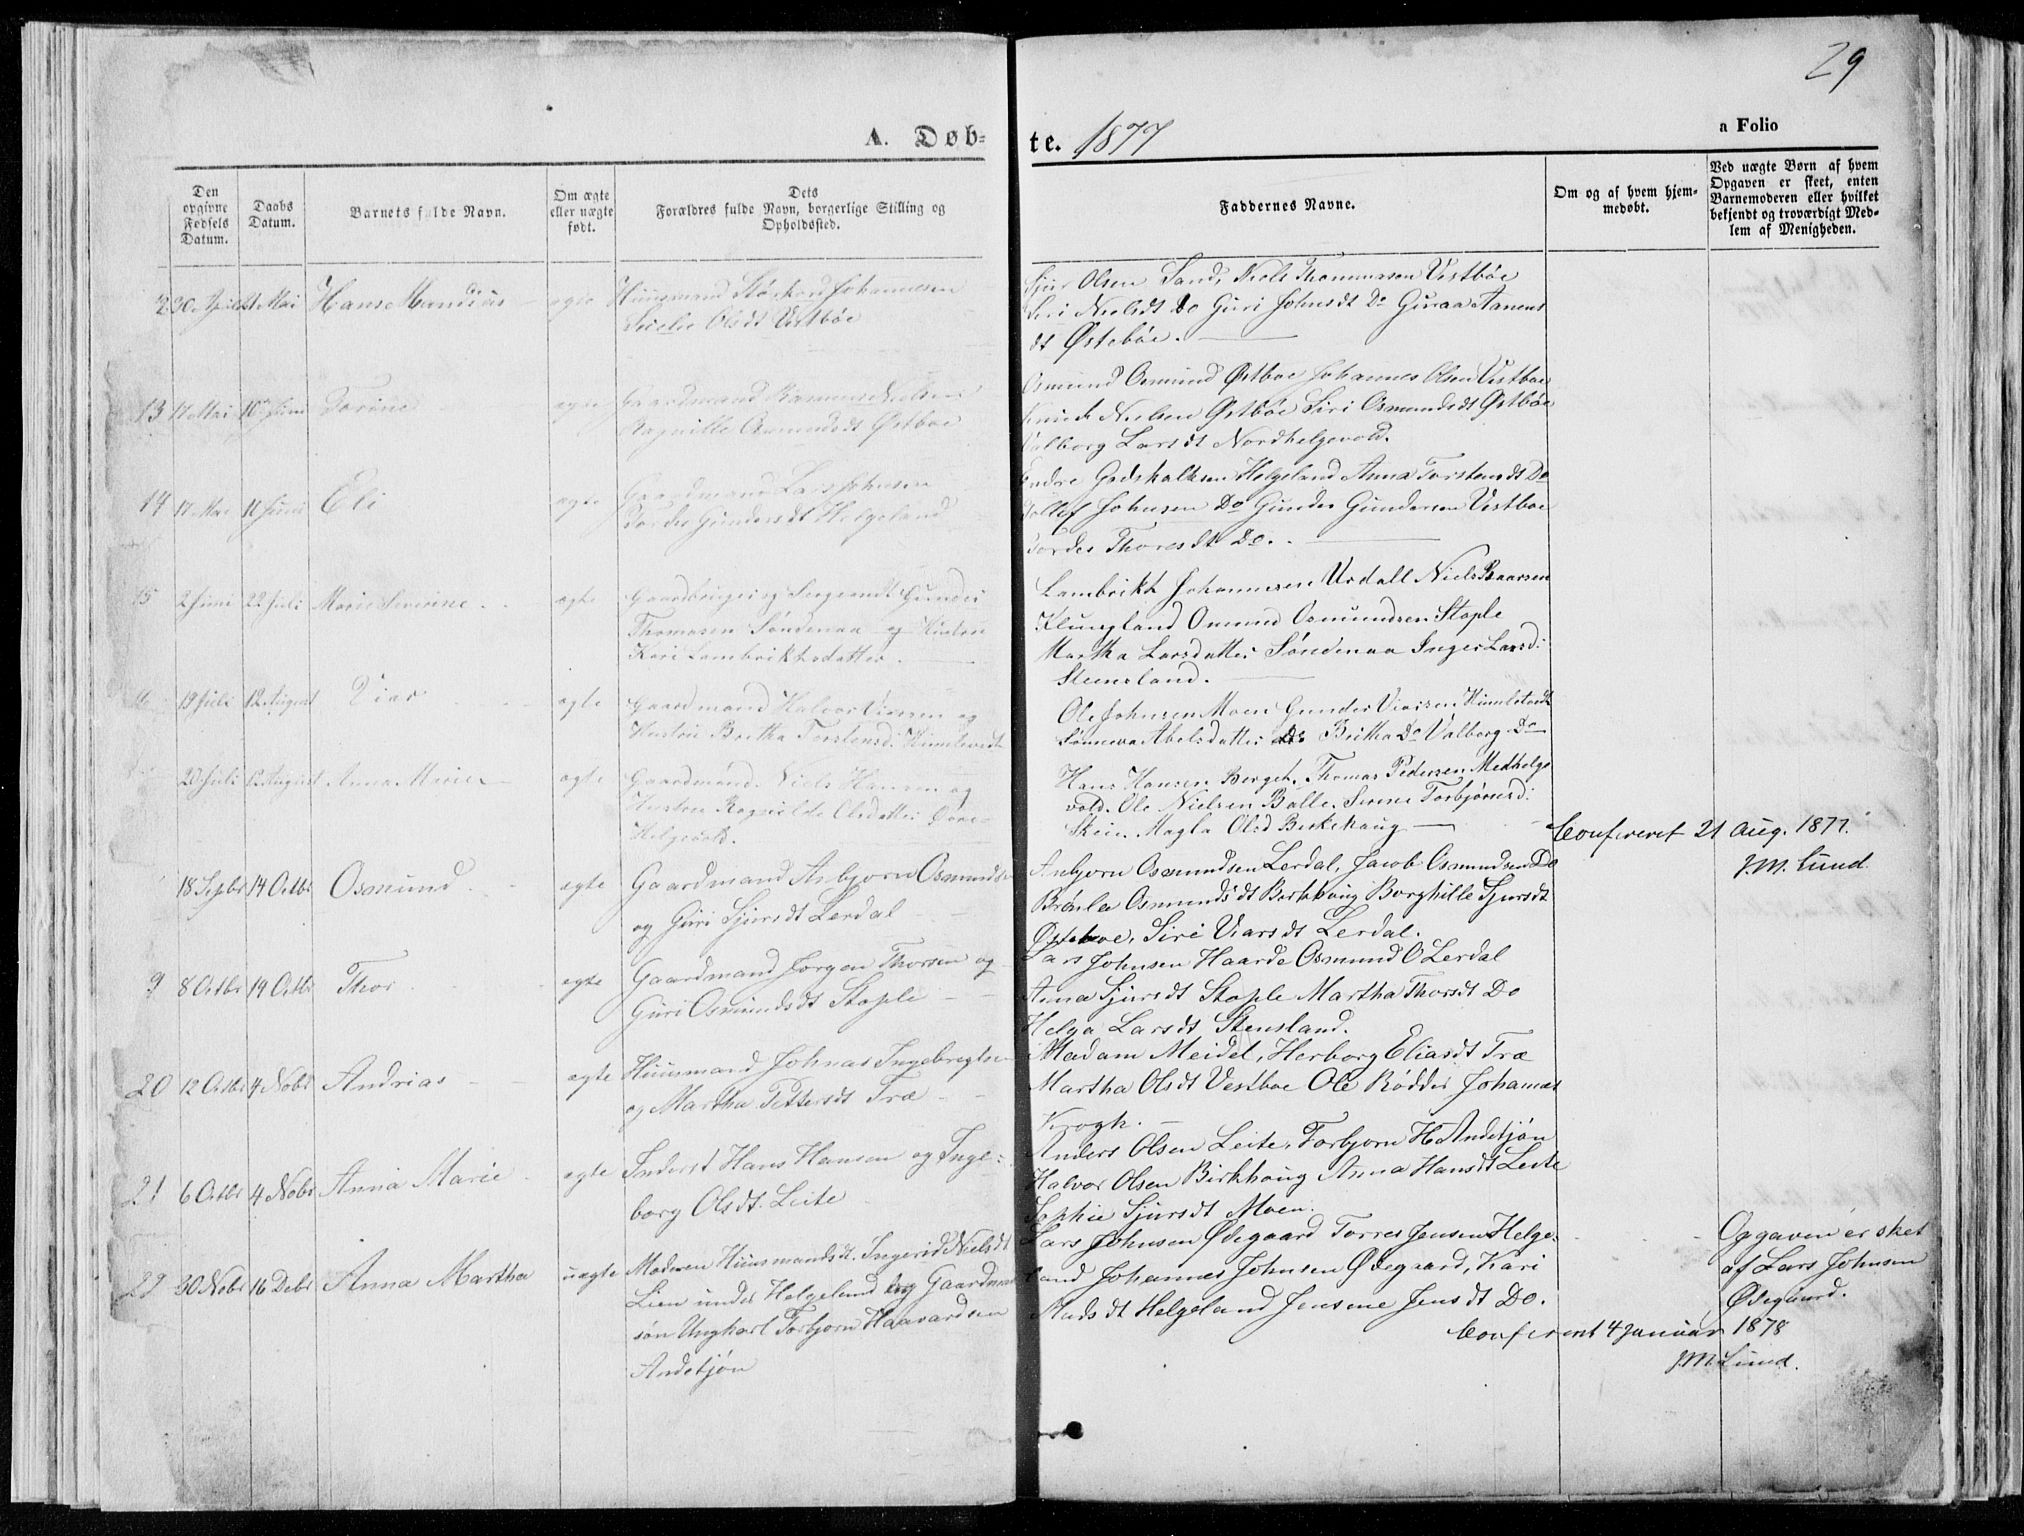 29
A. Døb=
te. 1877
a Folio
Den opgivne Fødsels Datum.
Daabs Datum.
Barnets fulde Navn.
Om ægte eller uægte født.
Dets Forældres fulde Navn, borgerlige Stilling og Opholdssted.
Faddernes Navne.
Om og af hvem hjemmedøbt.
Ved uægte Børn af hvem Opgaven er skeet, enten Barnemoderen eller hvilket bekjendt og troværdigt Medlem af Menigheden.
30 April Mai Hans Mandius ægte Huusmand Johannesen
Olsdt Vestbøe
Sjur Olsen Sand, Niels Thommassen Vestbøe
Siri Nielsdt Do Guri Johnsdt Do Guraa Aanens
dt Østebøe.
13 17 Mai 10 Juni Torine ægte Gaardmand Rasmus Nielsen
Ragnille Osmundsdt Østbøe
Osmund Osmund Østboe Johannes Olsen Vestboe
Knud Nielsen Østbøe Siri Osmundsdt Østbøe
Valborg Larsdt Nordhelgevold.
14 17 Mai 11 Juni Eli ægte Gaardmand Lars Johnsen
Tordes Gundersdt Helgeland
Endre Godskalksen Helgeland Anna Torstensdt Do
Tollef Johnsen Do Gunder Gundersen Vestboe
Tordes Thoresdt Do.
15 2 Juni 22 Juli Marie Severine ægte Gaardbruger og Sergeandt Gunder
Thomasen Søndenaa og Hustru
Kari Lambrikhsdatter.
Lambrikt Johannesen Urdall Niels Baarsen
Klungland Omund Osmundsen Stople
Martha Larsdatter Søndenaa Inger Larsd:
Steensland.
19 Juli 12 August Viar ægte Gaardmand Halvor Viarsen og
Hustru Britha Torstensd.
Ole Johnsen Moen Gunder Viarsen
Abelsdatter Do Britha Do Valborg Do
20 Juli 12 August Anna Marie ægte Gaardmand Niels Hansen og
Hustru Ragnilde Olsdatter
Helgevold.
Hans Hansen Berget, Thomas Pedersen Medhelge
vold. Ole Nielsen Balle. Serine Torbjørnsd:
Skeie Magla Olsd Birkehaug
Confereret 21 Aug. 1877.
J.M. Lund
18 Septbr 14 Octbr Osmund ægte Gaardmand Asbjorn Osmundsen
og Guri Sjursdt Lerdal
Asbjorn Osmundsen Lerdal, Jacob Osmundsen Do
Osmundsdt Birkhoug Borghille Sjursdt
Østeboe, Siri Viarsdt Lerdal.
9 8 Octbr 14 Octbr Thor ægte Gaardmand Jorgen Thorsen og
Guri Osmundsdt Stople
Lars Johnsen Haarde Osmund O Lerdal
Anna Sjursdt Stople Martha Thorsdt Do
Helga Larsdt Stensland.
20 12 Octbr 4 Nobr Andrias ægte Huusmand Johnas Ingebregtsen
og Martha Pettersdt Træ
Madam Meidel, Herborg Eliasdt Træ
Martha Olsdt Vestboe Ole Rødder Johannes
Krogh.
21 6 Octbr 4 Nobr Anna Marie ægte Inderst Hans Hansen og Inge=
borg Olsdt Leite
Anders Olsen Leite, Torbjorn H Andetjøn
Halvor Olsen Birkhoug Anna Hansdt Leite
Sophie Sjursdt Moen.
22 30 Nobr 16 Debr Anna Martha uægte Moderen Huusmandsdt. Ingerid Nielsdt
Lien under Helgeland og Gaardman
søn Ungkarl Torbjorn Haavardsen
Andetjøn
Lars Johnsen Ødegaard Torres Jensen Helge=
land Johannes Johnsen Ødegaard, Kari
Madsdt Helgeland Jensine Jensdt Do.
Opgaven er sket
af Lars Johnsen
Ødegaard.
Conferert 4 Januar 1878
J.M. Lund.